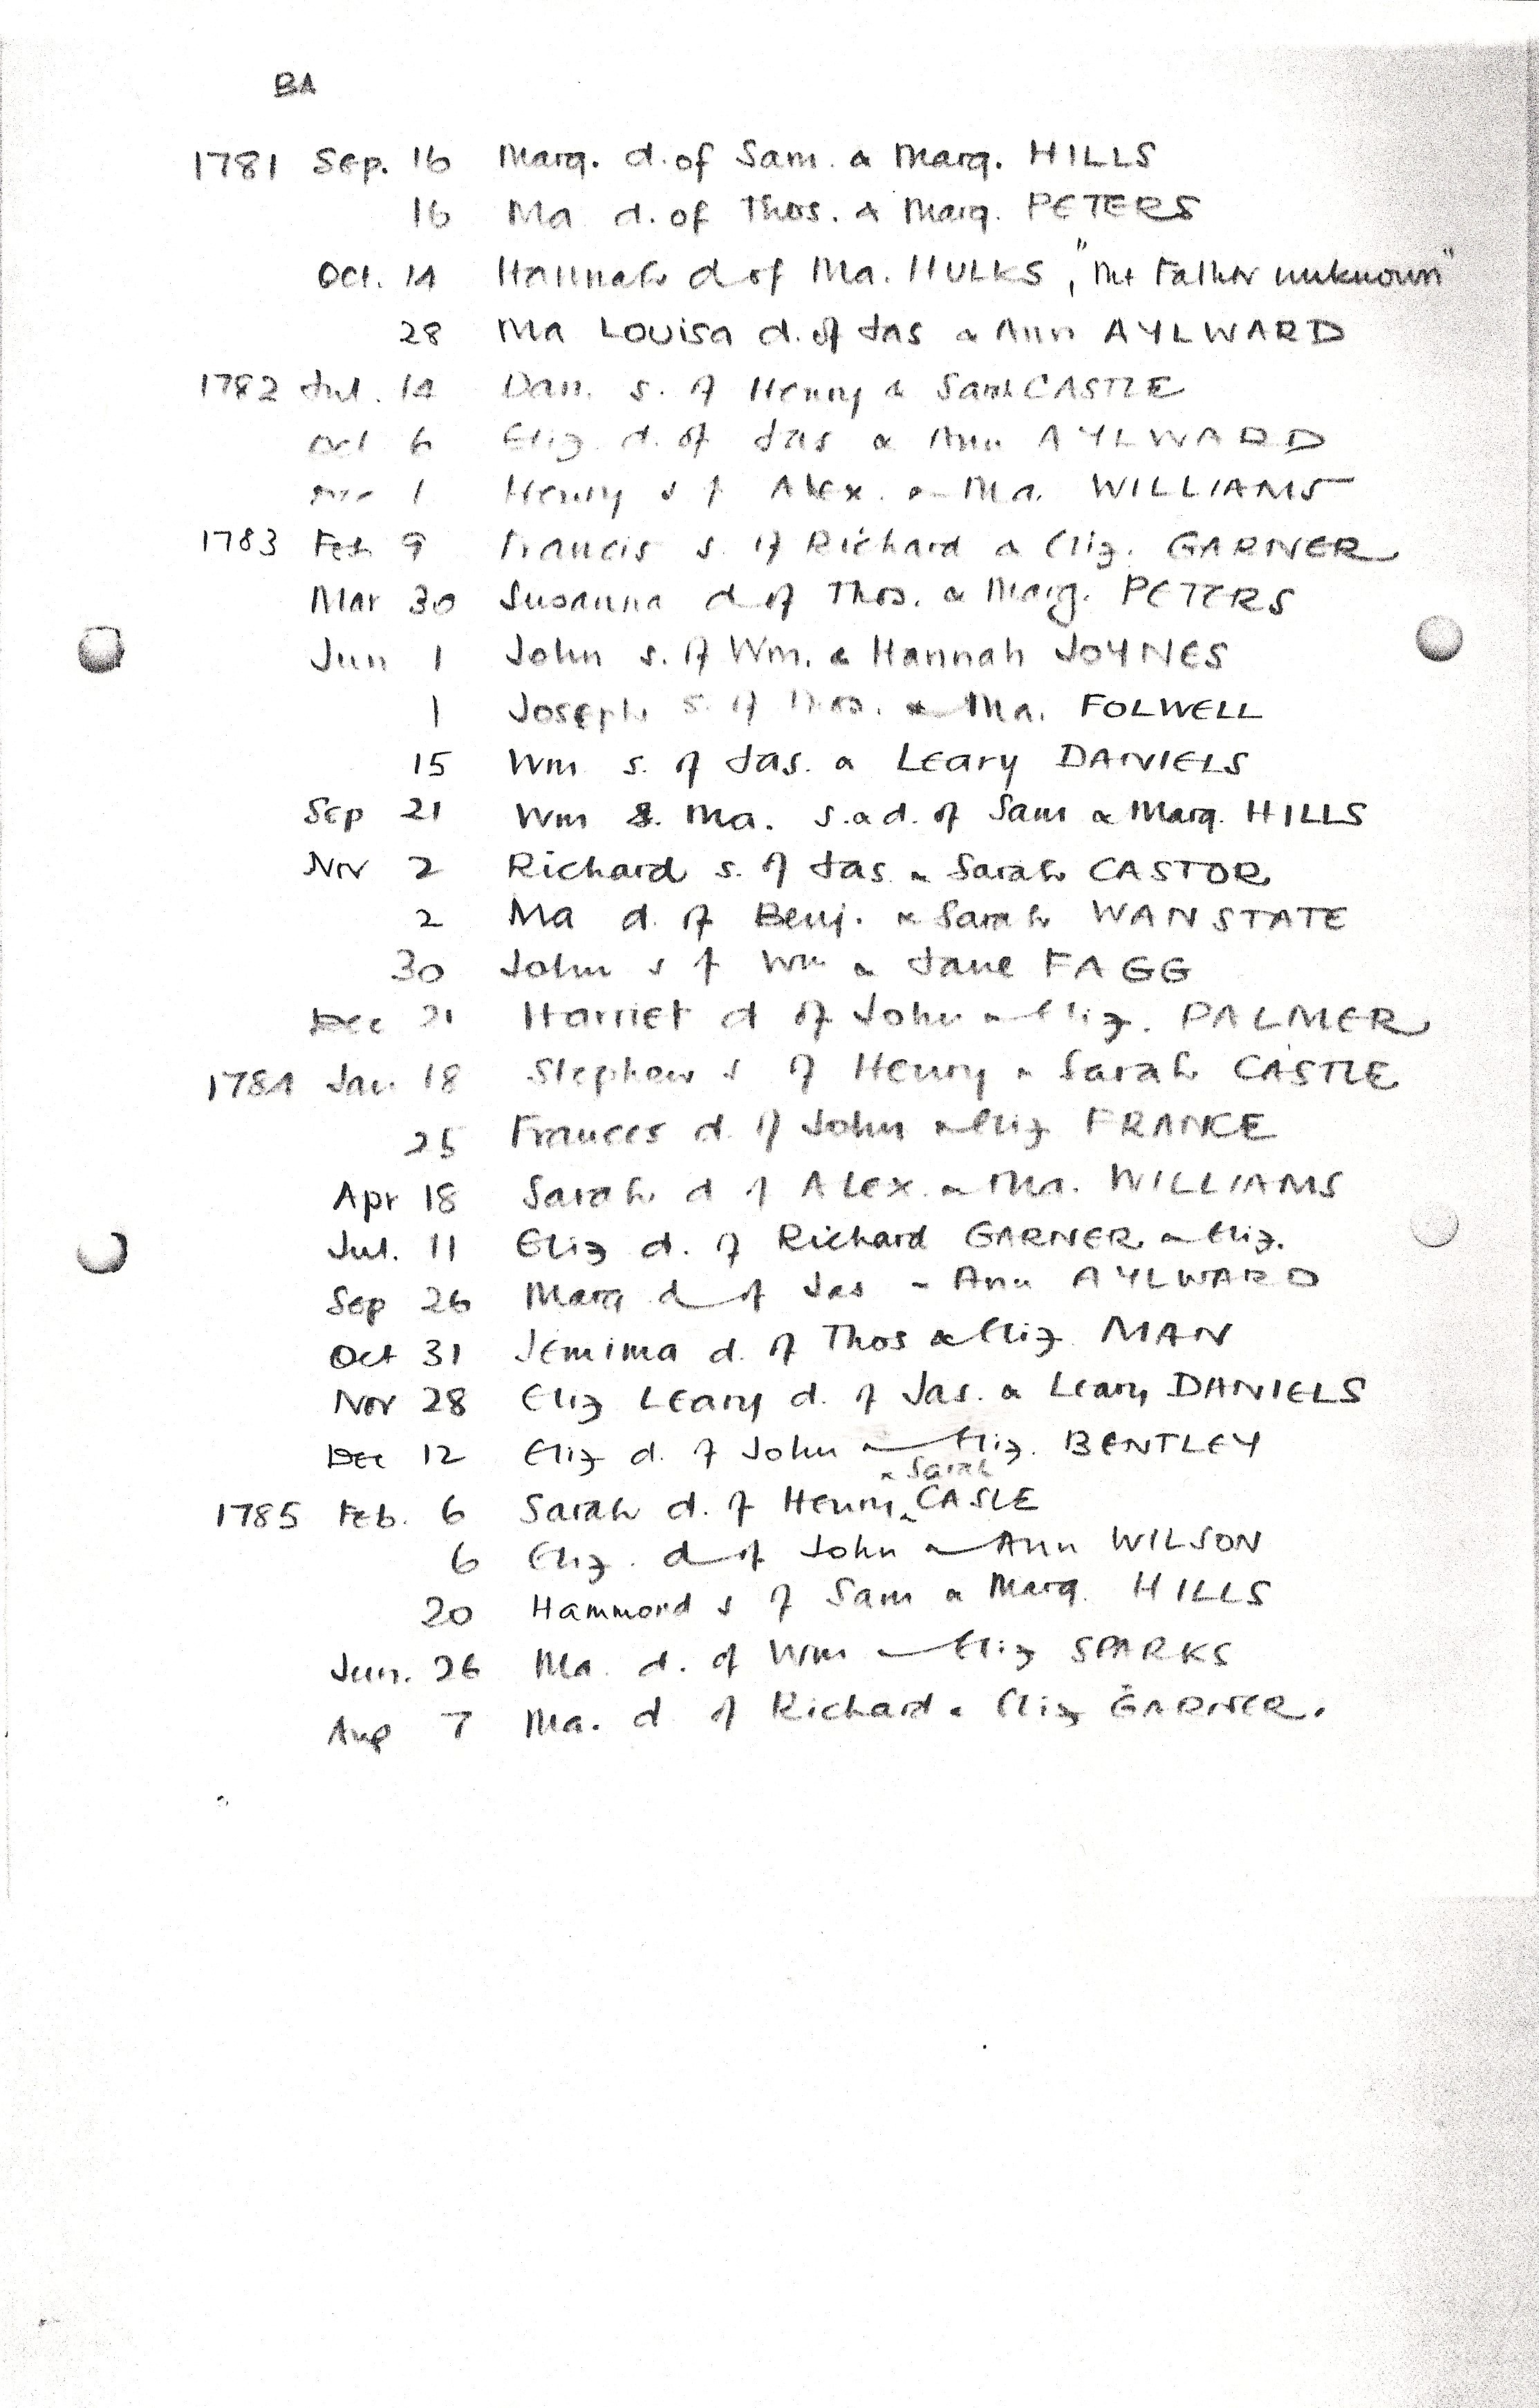 BA
1781 Sep. 16 Marg. d. of Sam. & Marg. HILLS
16 Ma d. of Thos. & Marg. PETERS
Oct. 14 Hannah d of Ma. HULKS, "the Father unknown"
28 Ma Louisa d. of Jas & Ann AYLWARD
1782 Jul. 14 Dan. s. of Henry & Sarah CASTLE
Oct 6 Eliz d. of Jas & Ann AYLWARD
1 Henry s of Alex. & Ma. WILLIAMS
1783 Feb 9 Francis s. of Richard & Eliz. GARNER
Mar 30 Susanna d of Thos. & Marg. PETERS
Jun 1 John s. of Wm. & Hannah JOYNES
1 Joseph s. of Thos. & Ma. FOLWELL
15 Wm s. of Jas. & Leary DANIELS
Sep 21 Wm & Ma. s. & d. of Sam & Marg. HILLS
Nov 2 Richard s. of Jas & Sarah CASTOR
2 Ma d. of Benj. & Sarah WANSTATE
30 John s of Wm & Jane FAGG
Dec 21 Harriet d of John & Eliz. PALMER
1784 Jan 18 Stephen s of Henry & Sarah CASTLE
25 Frances d. of John & Eliz FRANCE
Apr 18 Sarah d of Alex. & Ma. WILLIAMS
Jul. 11 Eliz d. of Richard GARNER & Eliz.
Sep 26 Marg d of Jas & Ann AYLWARD
Oct 31 Jemima d. of Thos & Eliz MAN
Nov 28 Eliz Leary d. of Jas. & Leary DANIELS
Dec 12 Eliz d. of John & Eliz. BENTLEY
& Sarah
1785 Feb. 6 Sarah d. of Henry ‸ CASLE
6 Eliz. d of John & Ann WILSON
20 Hammond s of Sam & Marg. HILLS
Jun. 26 Ma. d. of Wm & Eliz SPARKS
Aug 7 Ma. d of Richard & Eliz GARNER.